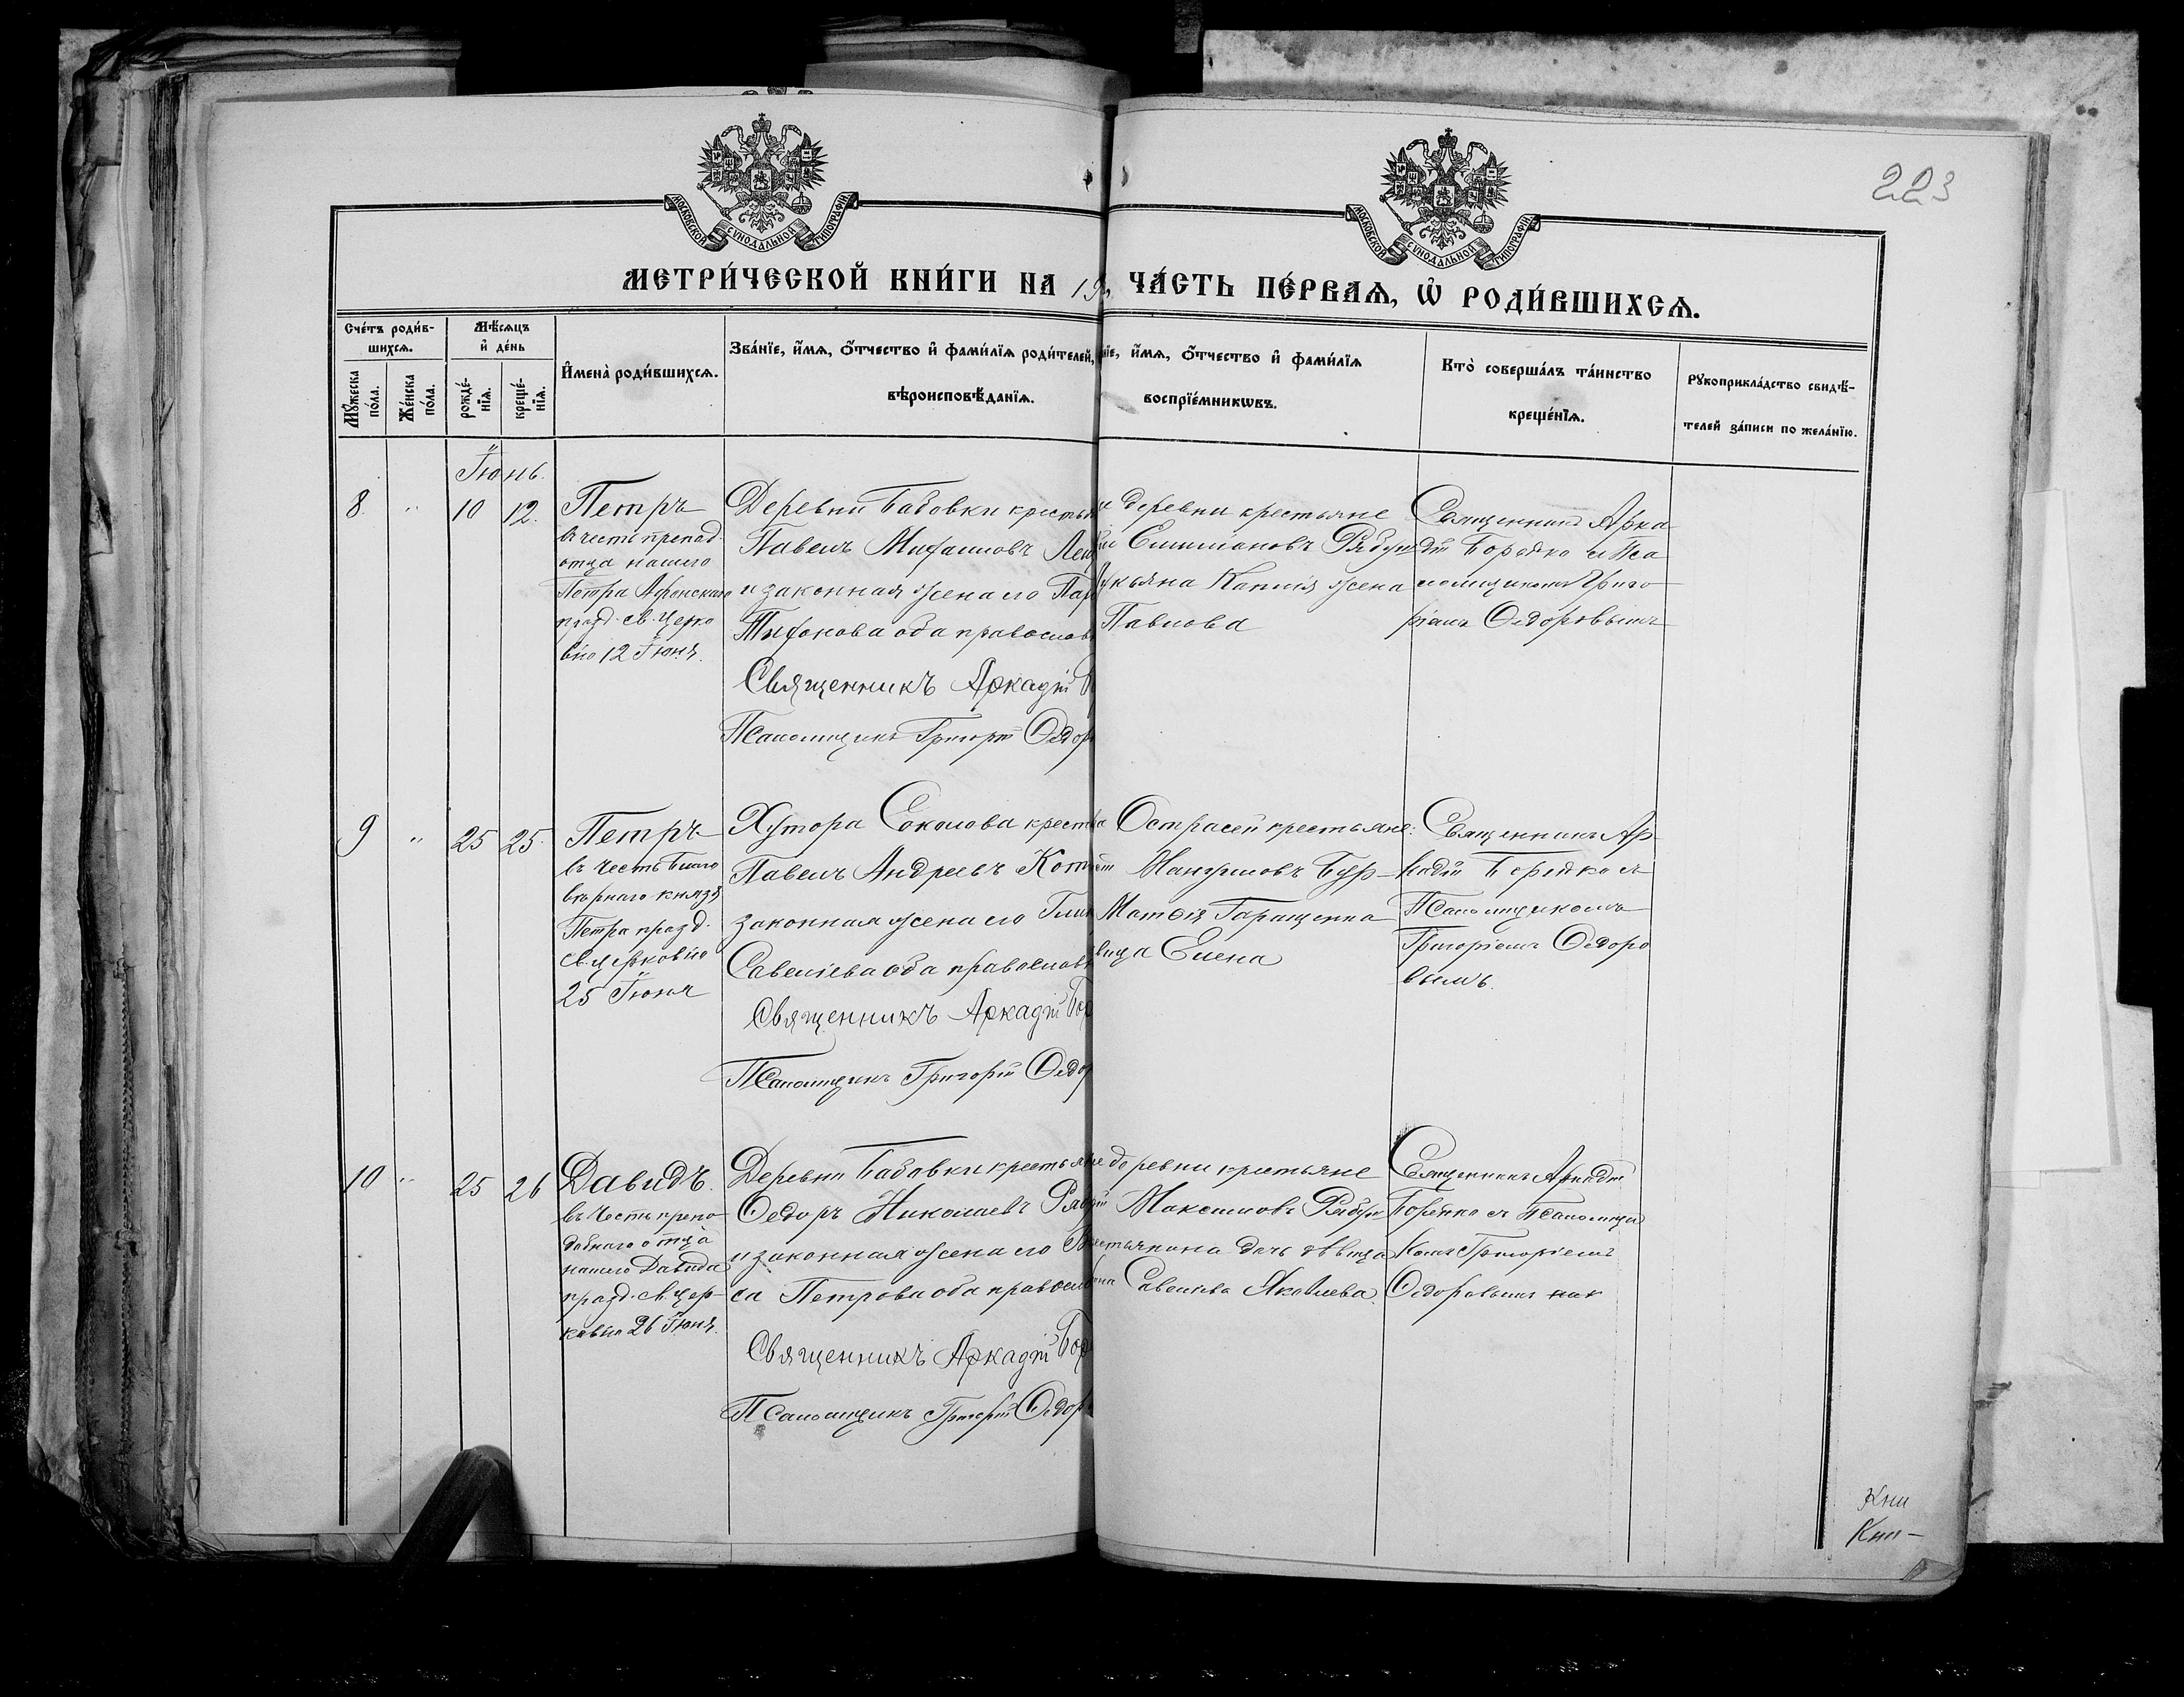 223
МОСКОВСКОЙ СѴНОДАЛЬНОЙ ТИПОГРАФІИ
МОСКОВСКОЙ СѴНОДАЛЬНОЙ ТИПОГРАФІИ
МЕТРИ́ЧЕСКОЙ КНИ́ГИ НА 19
ЧА́СТЬ ПЕ́РВАѦ, Ѡ҆ РОДИ́ВШИХСѦ.
Сче́тъ роди́в-
шихсѧ.
Мꙋ́жеска
по́ла.
Же́нска
по́ла.
Мѣ́сѧцъ
и҆ де́нь
рожде́-
нїѧ.
креще́-
нїѧ.
И҆мена̀ роди́вшихсѧ.
Зва́нїе, и҆́мѧ, ѻ҆́тчество и҆ фами́лїѧ роди́телей,
вѣроисповѣ́данїѧ.
нїе, и҆́мѧ, ѻ҆́тчество и҆ фами́лїѧ
воспрїе́мникѡвъ.
Кто̀ соверша́лъ та́инство
креще́нїѧ.
Рꙋкоприкла́дство свидѣ́-
телей за́писи по жела́нїю.
Іюнь.
8. " 10 12.
Петръ
въ честь препод.
отца нашего
Петра Афонскаго
празд. св. Церко
вію 12 Іюня.
Деревни Бабовки кресть
Павелъ Михаиловъ
и законная жена его Пар
Тихонова оба православ
Священникъ Аркадій
Псаломщикъ Григорій Ѳедор
деревни крестьяне
Емиліановъ Рябу
Лукьяна жена
Павлова
Священникъ Арка
дій Борейко и Пса
ломщикомъ Григо
ріемъ Ѳедоровымъ
9 " 25 25.
Петръ
въ честь благо
вѣрнаго князя
Петра празд.
св. церковію
25 Іюня
Хутора Соколова кресть
Павелъ Андреевъ Кот
законная жена его Гли
Савеліева оба православ
Священникъ Аркадій Бор
Псаломщикъ Григорій Ѳедо
крестьяне:
Матѳія Гаращенка
вица Елена
Священникъ Ар
кадій Борейко съ
Псаломщикомъ
Григоріемъ Ѳедоро
вымъ.
10 " 25 26
Давидъ.
въ честь препо
добнаго отца
нашего Давида
празд. св. цер-
ковію 26 Іюня.
Деревни Бабовки крестьяне
Ѳедоръ Николаевъ Ряб
и законная жена его
са Петрова оба правосл
Священникъ Аркадій Бор
Псаломщикъ Григорій Ѳедор
деревни крестьяне
Максимовъ Рябу
естьянина дочь дѣвица
Яковлева
Священникъ Аркадій
Борейко съ Псаломщи
комъ Григоріемъ
Ѳедоровымъ